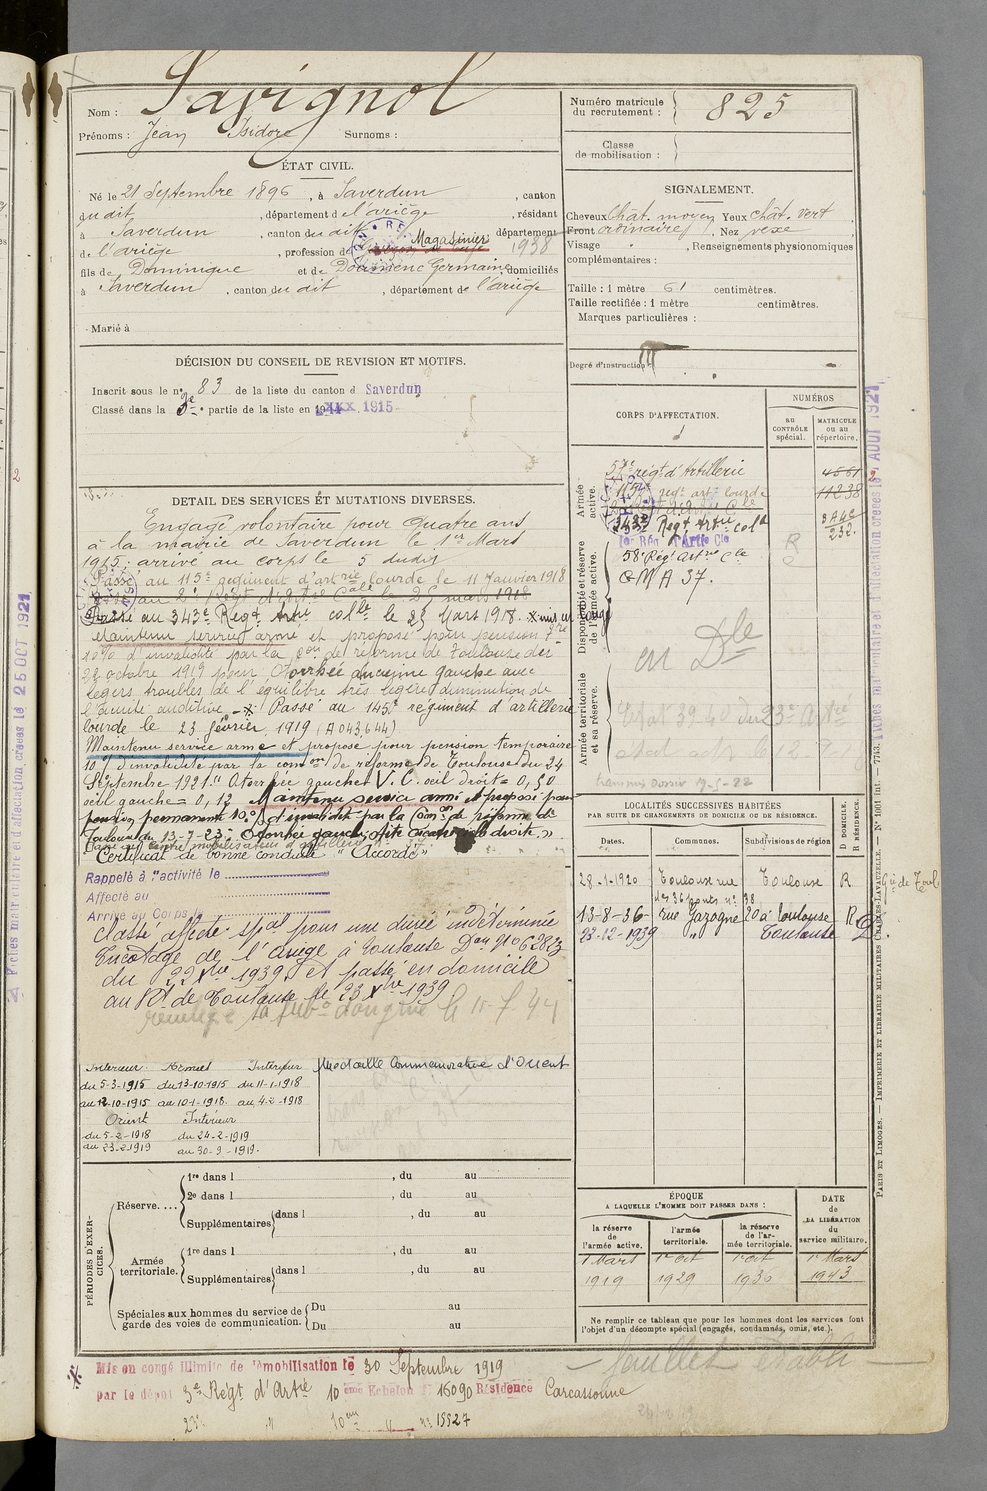 Nom : Savignol
Prénoms : Jean Isidore Surnoms :
Numéro matricule du recrutement : 825
Classe de mobilisation :
ÉTAT CIVIL.
Né le 21 Septembre 1896, à Saverdun, canton
du dit, département de l'ariège, résidant
à Saverdun, canton du dit, département
de l'ariège, profession de Magasinier 1938
fils de Dominique et de Doumenc Germaine, domiciliés
à Saverdun, canton du dit, département de l'ariège
Marié à
SIGNALEMENT.
Cheveux chât. moyen Yeux chât. vert
Front ordinaire, Nez vexe
Visage , Renseignements physionomiques
complémentaires :
Taille : 1 mètre 61 centimètres.
Taille rectifiée : 1 mètre centimètres.
Marques particulières :
Degré d'instruction
DÉCISION DU CONSEIL DE REVISION ET MOTIFS.
Inscrit sous le n° 83 de la liste du canton d Saverdun
Classé dans la 3e partie de la liste en 1915
DETAIL DES SERVICES ET MUTATIONS DIVERSES.
Engagé volontaire pour quatre ans
à la mairie de Saverdun le 1er Mars
1915; arrivé au corps le 5 dudit
Passé au 115e régiment d'artrie lourde le 11 Janvier 1918
Passé au 2e Régt d'Artie Cale le 25 mars 1918
Passé au 343e Regt Artie colle le 25 Mars 1918.
Maintenu service armé et proposé pour pension
10% d'invalidité par la con de réforme de Toulouse du
22 octobre 1919 pour Otorrhée ancienne gauche avec
légers troubles de l'équilibre très légère diminution de
l'acuité auditive Passé au 145e régiment d'artillerie
lourde le 23 février 1919 (A 043,644)
Maintenu service armé et proposé pour pension temporaire
10% d'invalidité par la comon de réforme de Toulouse du 24
Septembre 1921. "Otorrhée gauche. V. C. oeil droit = 0,50
oeil gauche = 0,12 Maintenu service armé et proposé pour
pension permanente 10% d'invalidité par la Comon de réforme de
Toulouse du 13-7-23. Otorrhée gauche, droite."
"Certificat de bonne conduite "Accordé"
Rappelé à l'activité le
Affecté au
Arrivé au Corps le
Classé affecté spal pour une durée indéterminée
du 22 Xbre 1939, et passé en domicile
au RM de Toulouse le 23 Xbre 1939
Intérieur Armées Intérieur
du 5-3-1915 du 13-10-1915 du 11-1-1918
au 12-10-1915 au 10-1-1918 au 4-2-1918
Orient Intérieur
du 5-2-1918 du 24-2-1919
au 23-2-1919 au 30-9-1919.
Medaille Commemorative d'Orient
CORPS D'AFFECTATION.
NUMÉROS
au CONTRÔLE spécial.
MATRICULE ou au répertoire.
Armée active.
57e régt d'Artillerie 4561
115e regt art. lourde 11238
343e Regt Artie cole
232.
58e Reg Artie Cle
CMA 37.
Disponibilité et réserve de l'armée active.
en Dle
Armée territoriale et sa réserve.
LOCALITÉS SUCCESSIVES HABITÉES
PAR SUITE DE CHANGEMENTS DE DOMICILE OU DE RÉSIDENCE.
Dates. Communes. Subdivisions de région D DOMICILE. R RÉSIDENCE.
28-1-1920 Toulouse rue des 36 ponts n° 38 Toulouse R
13-8-36 rue Gazogne 20 à Toulouse R
23-12-1939 " Toulouse D.
PÉRIODES D'EXERCICES.
Réserve....
1re dans l , du au
2e dans l , du au
Supplémentaires dans l , du au
Armée territoriale.
1re dans l , du au
Supplémentaires dans l , du au
Spéciales aux hommes du service de garde des voies de communication.
Du au
Du au
ÉPOQUE
A LAQUELLE L'HOMME DOIT PASSER DANS :
la réserve de l'armée active.
l'armée territoriale.
la réserve de l'armée territoriale.
DATE de LA LIBÉRATION du service militaire.
1 Mars 1919
1er oct 1929
1er oct 1936
1er Mars 1943
Ne remplir ce tableau que pour les hommes dont les services font
l'objet d'un décompte spécial (engagés, condamnés, omis, etc.).
feuillet établi
Mis en congé illimité de démobilisation le 30 Septembre 1919
par le dépôt 3e Regt d'Artie 10ème Echelon n° 16090 Résidence Carcassonne
n° 15527
PARIS ET LIMOGES. — IMPRIMERIE ET LIBRAIRIE MILITAIRES CHARLES-LAVAUZELLE. — N° 1011 int. — 7743.
Fiches matriculaire et d'affectation créées le 25 OCT 1921
Fiches matriculaire et d'affectation créées le AOUT 1921